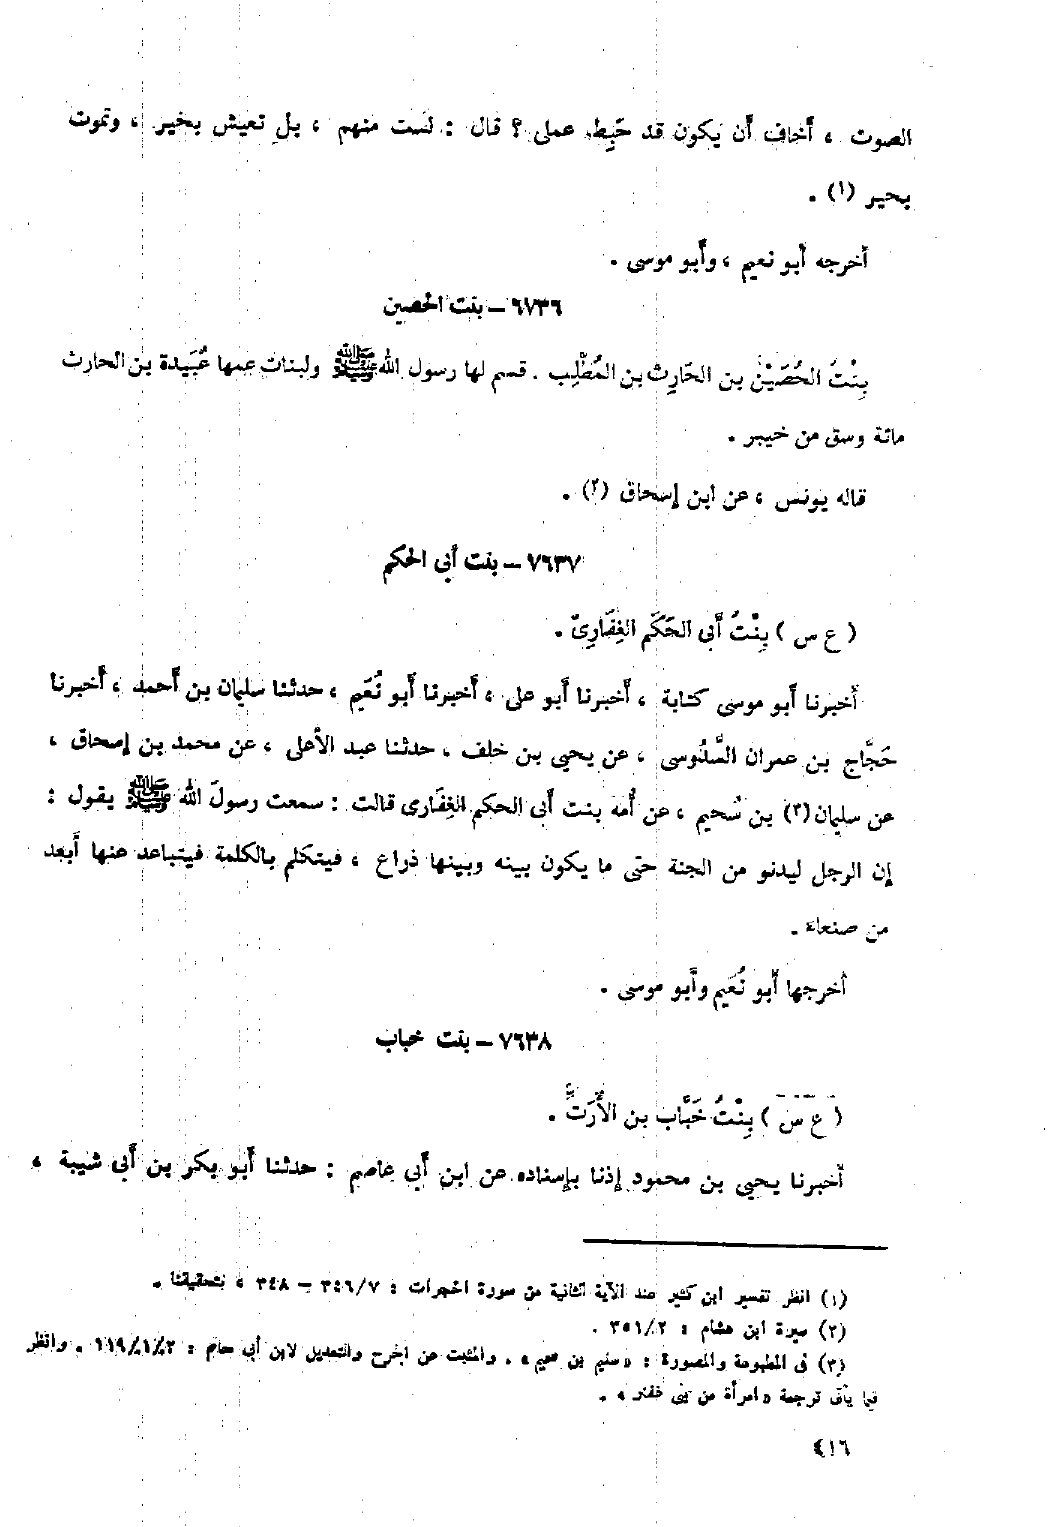 الصوت ، أخاف أن يكون قد حَبِط عملى ؟ قال : لست منهم ، بل تعيش بخير ، وتموت
بخير (١) .
أخرجه أبو نعيم ، وأبو موسى .
٦٧٣٦ – بنت الحصين
بِنْتُ الحُصَيْن بن الحَارِث بن المُطَّلِب . قسم لها رسول الله ﷺ ولبنات عمها عُبَيدة بن الحارث
مائة وسق من خيبر .
قاله يونس ، عن ابن إسحاق (٢) .
٧٦٣٧ – بنت أبى الحكم
( ع س ) بِنْتُ أَبى الحَكَم الغِفَارِىّ .
أخبرنا أبو موسى كتابة ، أخبرنا أبو على ، أخبرنا أبو نُعَيم ، حدثنا سليمان بن أحمد ، أخبرنا
حَجَّاج بن عمران السَّدُوسى ، عن يحيى بن خلف ، حدثنا عبد الأعلى ، عن محمد بن إسحاق ،
عن سليمان (٣) بن سُحيم ، عن أُمه بنت أبى الحكم الغِفَارى قالت : سمعت رسولَ الله ﷺ يقول :
إن الرجل ليدنو من الجنة حتى ما يكون بينه وبينها ذراع ، فيتكلم بالكلمة فيتباعد عنها أَبعد
من صنعاء .
أخرجها أبو نُعَيم وأَبو موسى .
٧٦٣٨ – بنت خباب
( ع س ) بِنْتُ خَبَّاب بن الأَرَتّ .
أخبرنا يحيى بن محمود إذنا بإسناده عن ابن أَبى عاصم : حدثنا أَبو بكر بن أَبى شيبة ،
(١) انظر تفسير ابن كثير عند الآية الثانية من سورة الحجرات : ٣٤٦/٧ – ٣٤٨ ، بتحقيقنا .
(٢) سيرة ابن هشام : ٣٥١/٢ .
(٣) فى المطبوعة والمصورة : « سليم بن سحيم » . والمثبت عن الجرح والتعديل لابن أبى حاتم : ١١٩/١/٢ . وانظر
فيما يأتى ترجمة « امرأة من بنى غفار » .
٤١٦